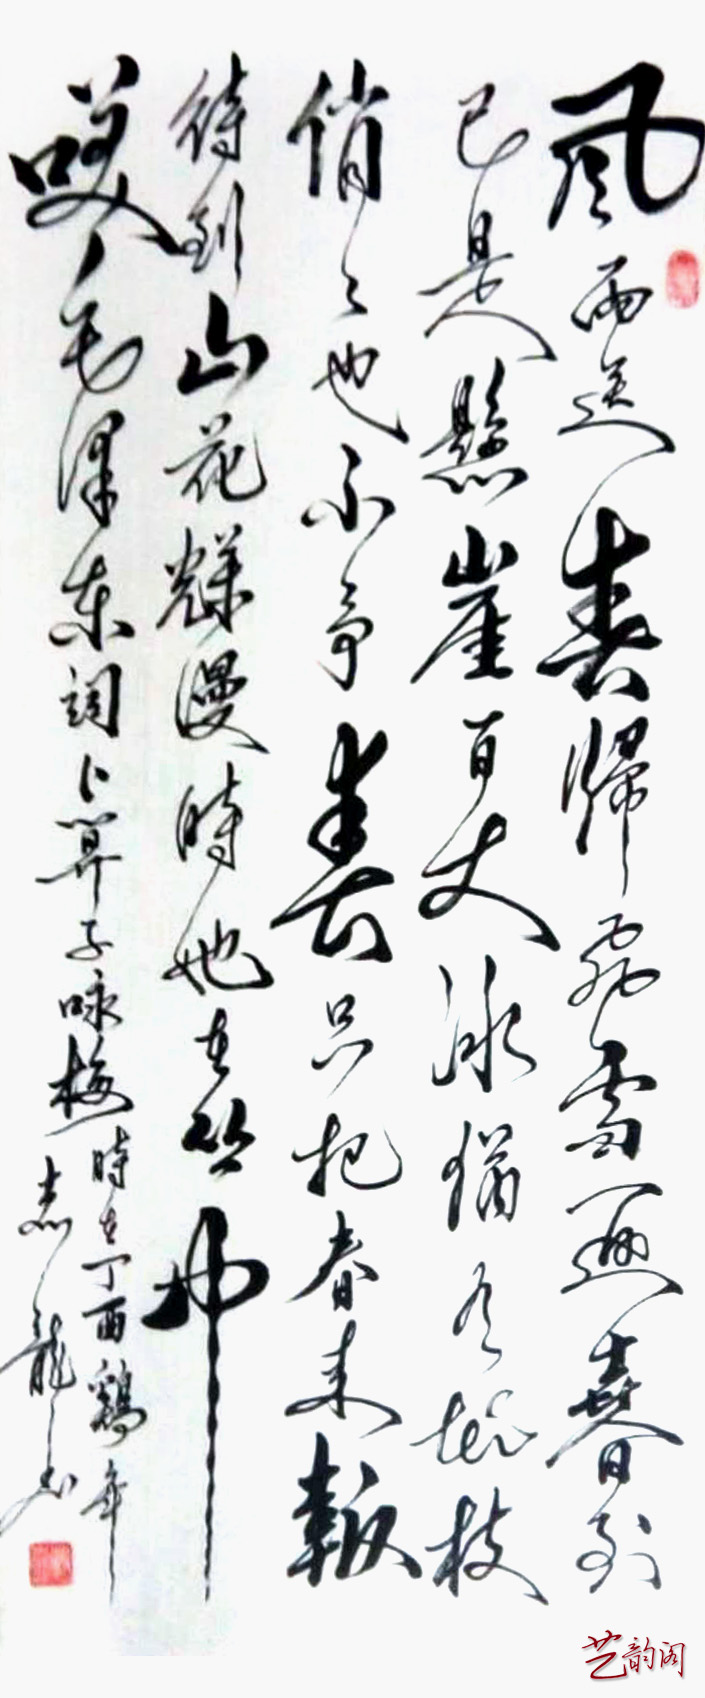 風雨送春歸飛雪迎春到
已是懸崖百丈冰猶有花枝
俏々也不爭春只把春來報
待到山花爛漫時她在丛中
咲毛澤东詞卜算子咏梅
時在丁酉鷄年
志龍书
艺韵阁